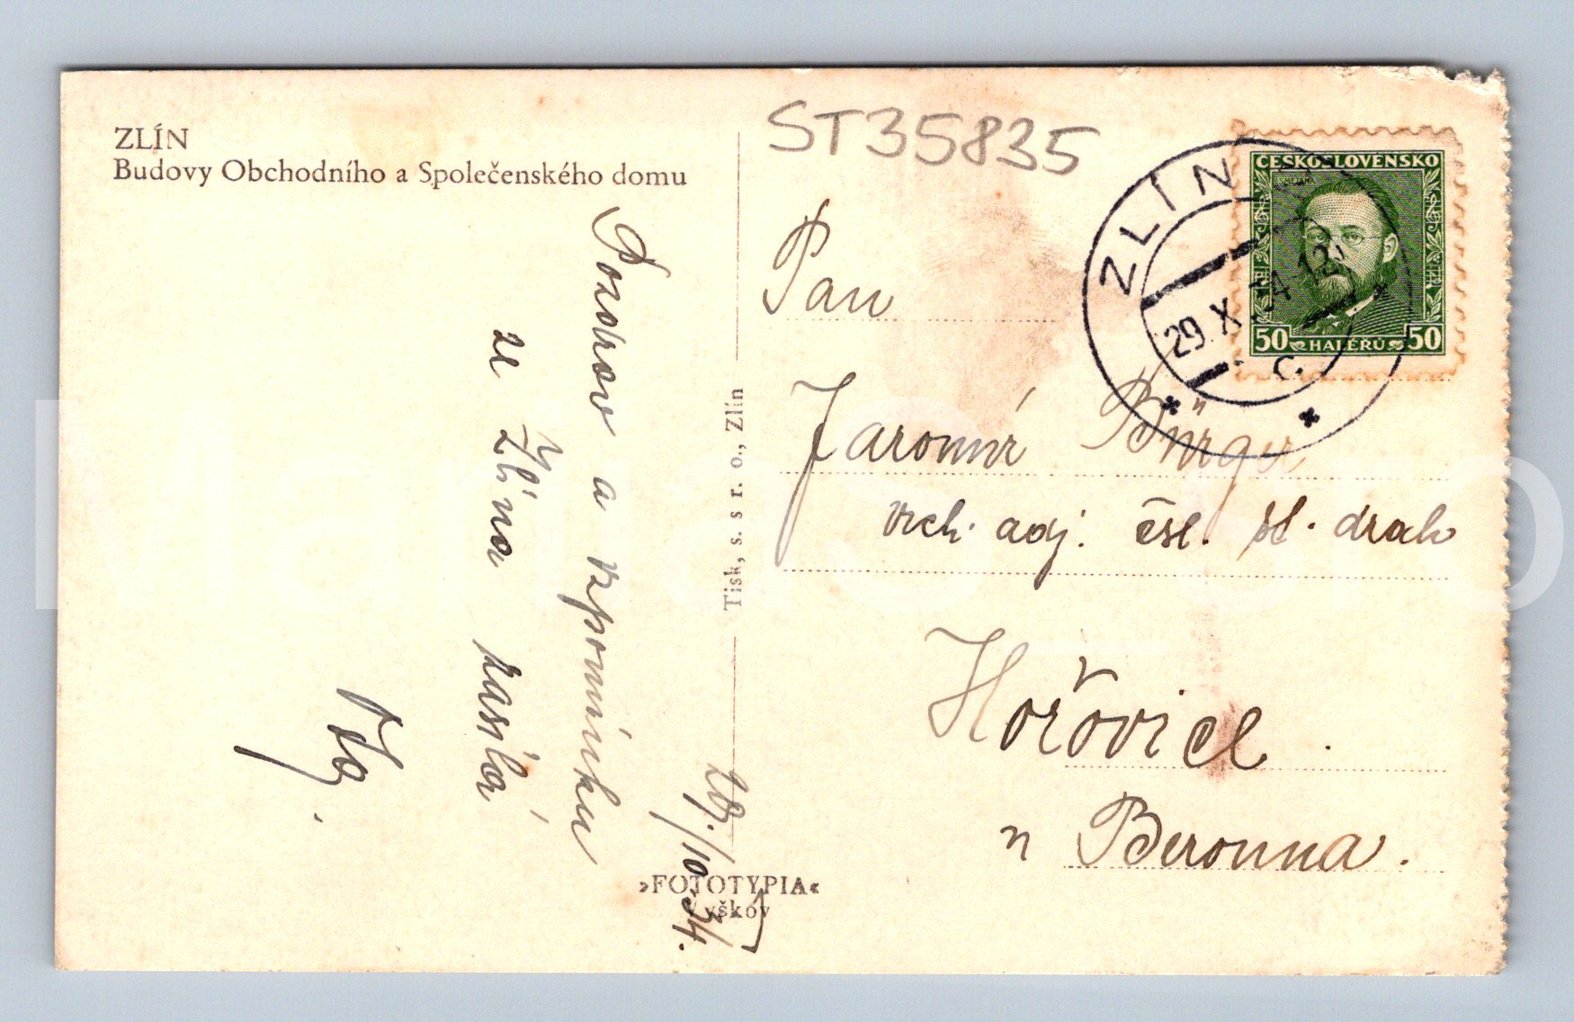 ZLÍN
Budovy Obchodního a Společenského domu
ST35835
ČESKOSLOVENSKO
50 HALÉŘŮ 50
ZLÍN
29. X. 34. 12
C.
Pozdrav a vzpomínku
ze Zlína zasílá
29./10. 34.
Tisk, s. s r. o., Zlín
»FOTOTYPIA«
Vyškov
Pan
Jaromír Bürger
vrch. adj. čsl. st. drah
Hořovice
u Berouna.